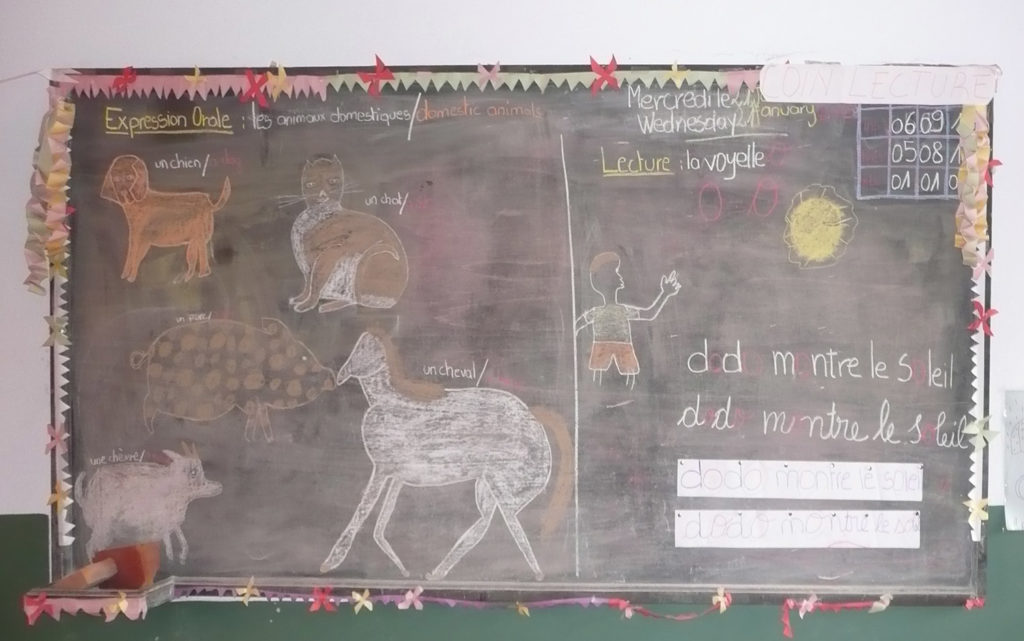 COIN LECTURE
Expression Orale : les animaux domestiques/domestic animals
un chien/a dog
un chat/
un porc/
un cheval/
une chèvre/
Mercredi le
Wednesday January
Lecture : la voyelle o
O - O
06 09 1
05 08 1
01 01 0
dodo montre le soleil
dodo montre le soleil
dodo montre le soleil
dodo montre le so